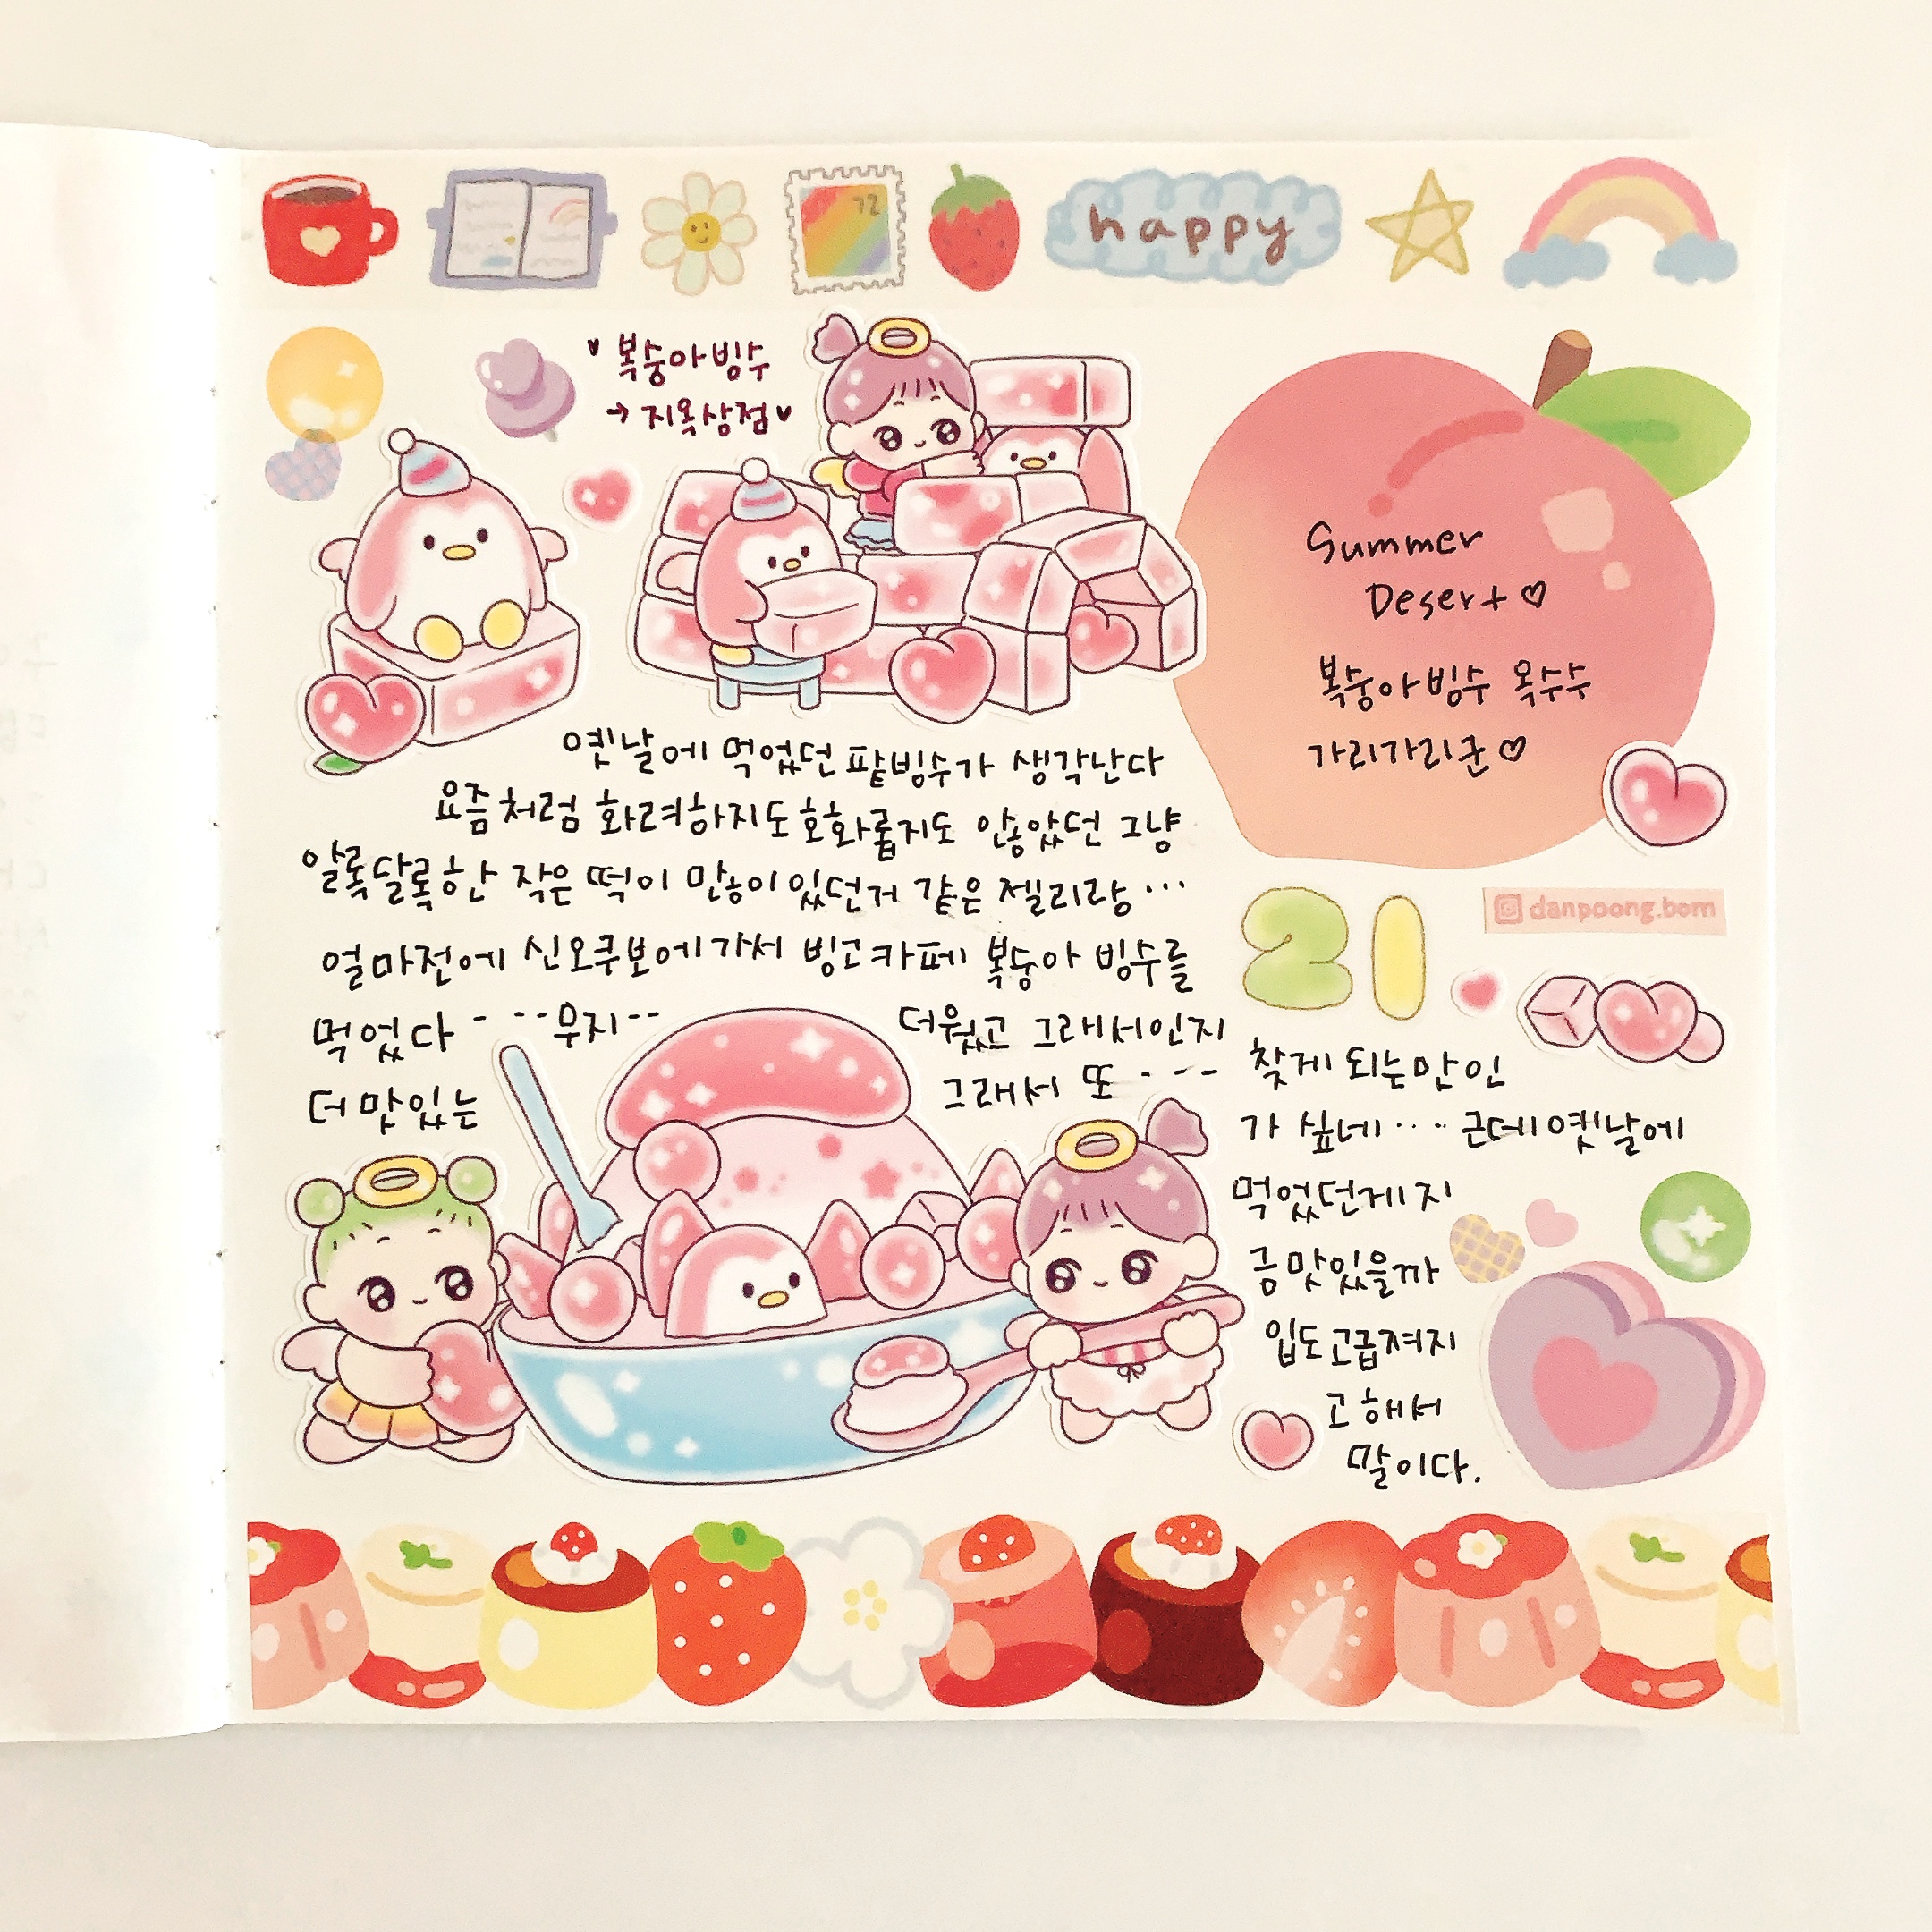 happy
72
♥ 복숭아빙수
→ 지옥상점♥
Summer
Desert♡
복숭아빙수 옥수수
가리가리군♡
옛날에 먹었던 팥빙수가 생각난다
요즘처럼 화려하지도 호화롭지도 않았던 그냥
알록달록한 작은 떡이 많이있던거 같은 젤리랑...
얼마전에 신오쿠보에가서 빙고카페 복숭아 빙수를
먹었다 - --무지-- 더웠고 그래서인지
더맛있는 그래서 또 ---
21
danpoong.bom
찾게 되는만인
가 싶네.... 근데옛날에
먹었던게지
금맛있을까
입도고급져지
고해서
말이다.